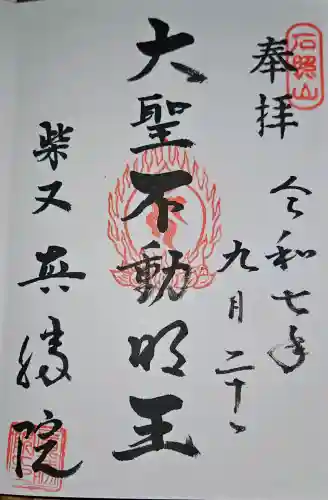 奉拝
石照山
令和七年
九月二十日
大聖不動明王
柴又真勝院